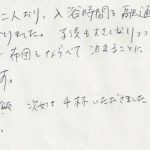 二人おり、入浴時間を融通
りました。子供も大きくなりつつ
布団をならべて泊まることに
す。
飯 次女は4杯いただきました
。